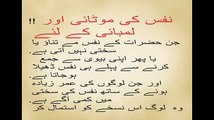 نفس کی موٹائی اور
لمبائی کے لئے !!
جن حضرات کے نفس مے تناؤ یا
سختی نہیں آتی ہے۔
یا پھر اپنی بیوی سے جمع
کرتے سے پہلے ہی نفس ڈھیلا
ہوجاتا ہے۔
اور جن لوگوں کی عمر زیادہ
ہونے کے ساتھ نفس کی سختی
میں کمی آگئی ہے۔
وہ لوگ اس نسخے کو استمال کر